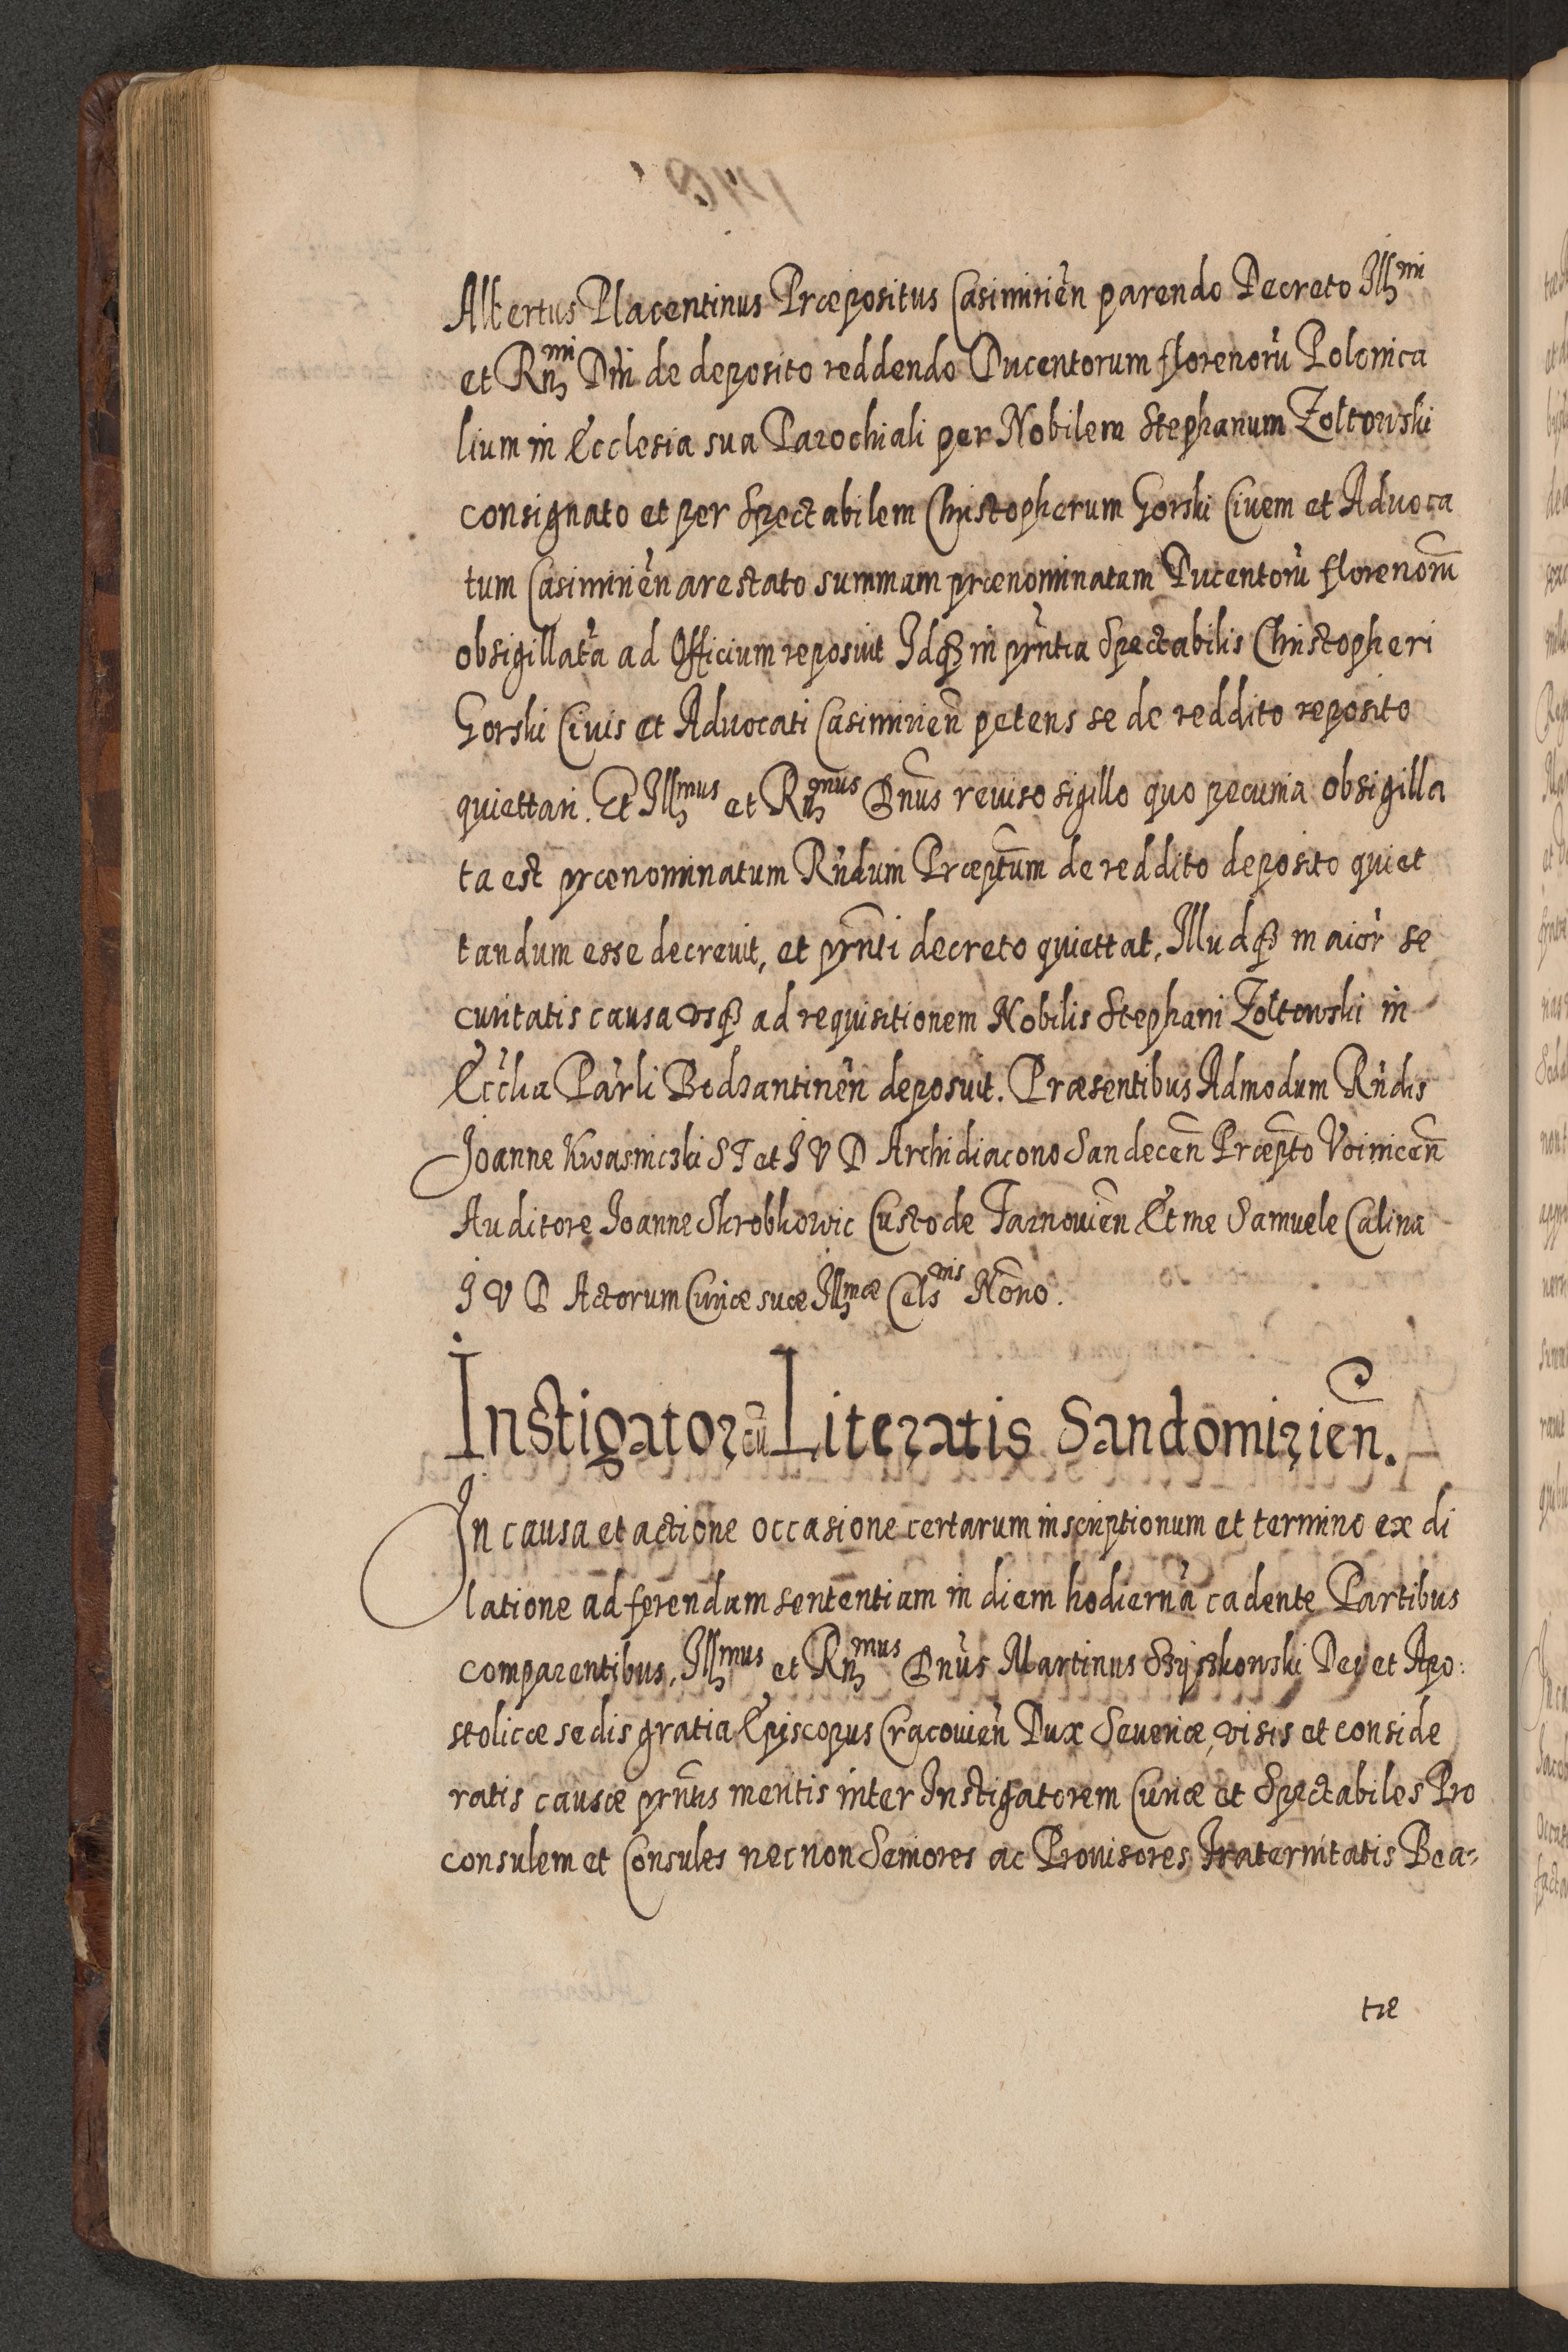 Albertus Placentinus Præpositus Casimirień parendo Decreto Illmi
et Rnmi Dńi de deposito reddendo Ducentorum florenorú Polonica
lium in Ecclesia sua Parochiali per Nobilem Stephanum Zoltowski
consignato et per Spectabilem Christopherum Gorski Civem et Advoca
tum Casimirień arestato summam prænominatam Ducentorú florenorū
obsigillatá ad Officium reposuit Idq3 in prńtia Spectabilis Christopheri
Gorski Civis et Advocati Casimirień petens se de reddito reposito
quiettari. Et Illmus et Rnmus Dnūs reviso sigillo quo pecunia obsigilla
ta est prænominatum Rńdum Præptūm de reddito deposito quiet
tandum esse decrevit, et prn̄ti decreto quiettat, Illudq3 maiór se
curitatis causa vsq3 ad requisitionem Nobilis Stephani Zoltowski in
Ecćlia Paŕli Bodzantinēn deposuit. Præsentibus Admodum Rńdis
Joanne Kwasnicski S T et I V D Archidiacono Sandecēn Præpt̄o Voinicēn
Auditore Joanne Skrobkowic Custode Tarnoviēn Et me Samuele Calina
I V D Actorum Curiæ suæ Illmæ Celsnis Nōno.
Instigator cū Literatis Sandomiriēn.
In causa et actione occasione certarum inscriptionum et termino ex di
latione ad ferendam sententiam in diem hodierná cadente Partibus
comparentibus, Illmus et Rnmus Dnūs Martinus Szyszkowski Dei et Apo:
stolicæ sedis gratia Episcopus Cracoviēn Dux Severiæ, visis et conside
ratis causæ prn̄tis meritis inter Instigatorem Curiæ et Spectabiles Pro
consulem et Consules necnon Seniores ac Provisores Fraternitatis Bea=
tæ